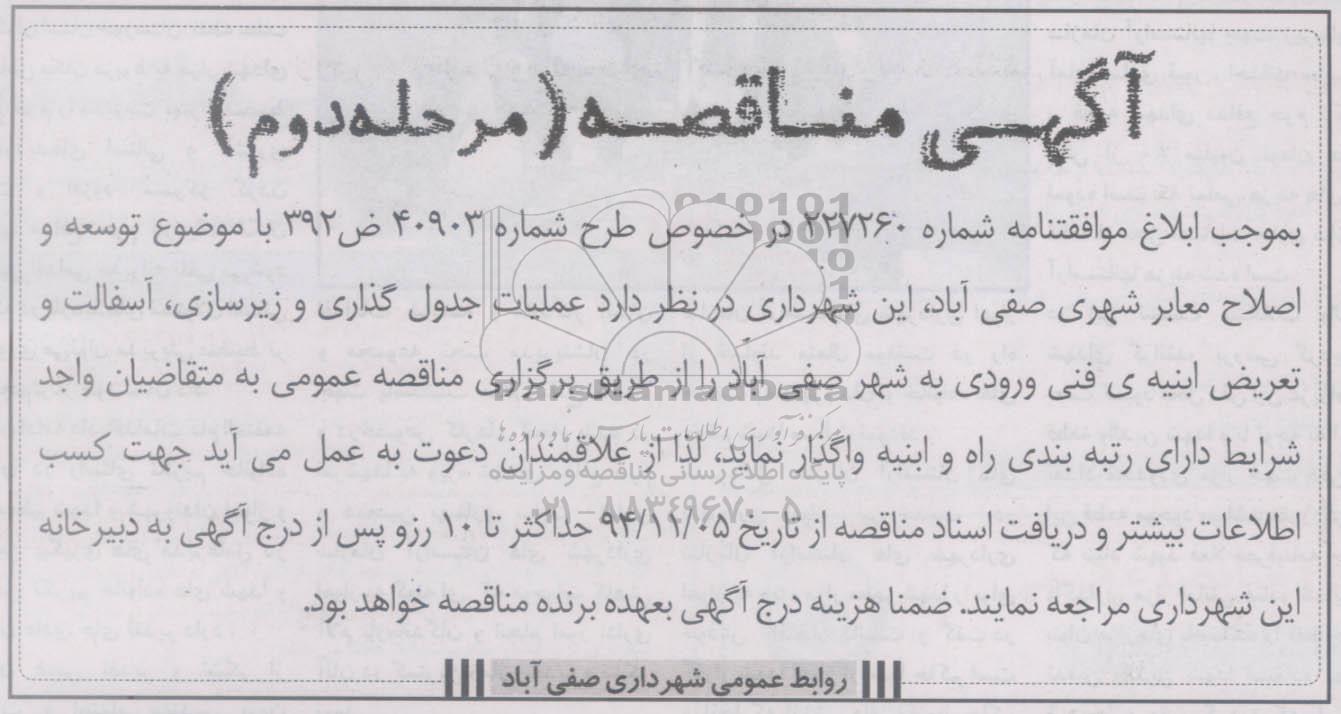 آگهی مناقصه (مرحله دوم)
بموجب ابلاغ موافقتنامه شماره ۲۲۷۲۶۰ در خصوص طرح شماره ۴۰۹۰۳ ض ۳۹۲ با موضوع توسعه و
اصلاح معابر شهری صفی آباد، این شهرداری در نظر دارد عملیات جدول گذاری و زیرسازی، آسفالت و
تعریض ابنیه ی فنی ورودی به شهر صفی آباد را از طریق برگزاری مناقصه عمومی به متقاضیان واجد
شرایط دارای رتبه بندی راه و ابنیه واگذار نماید، لذا از علاقمندان دعوت به عمل می آید جهت کسب
اطلاعات بیشتر و دریافت اسناد مناقصه از تاریخ ۹۴/۱۱/۵ حداکثر تا ۱۰ رزو پس از درج آگهی به دبیرخانه
این شهرداری مراجعه نمایند. ضمنا هزینه درج آگهی بعهده برنده مناقصه خواهد بود.
روابط عمومی شهرداری صفی آباد
ParsNamadData
پایگاه اطلاع رسانی مناقصه و مزایده
۰۲۱-۸۸۳۴۹۶۷۰-۵